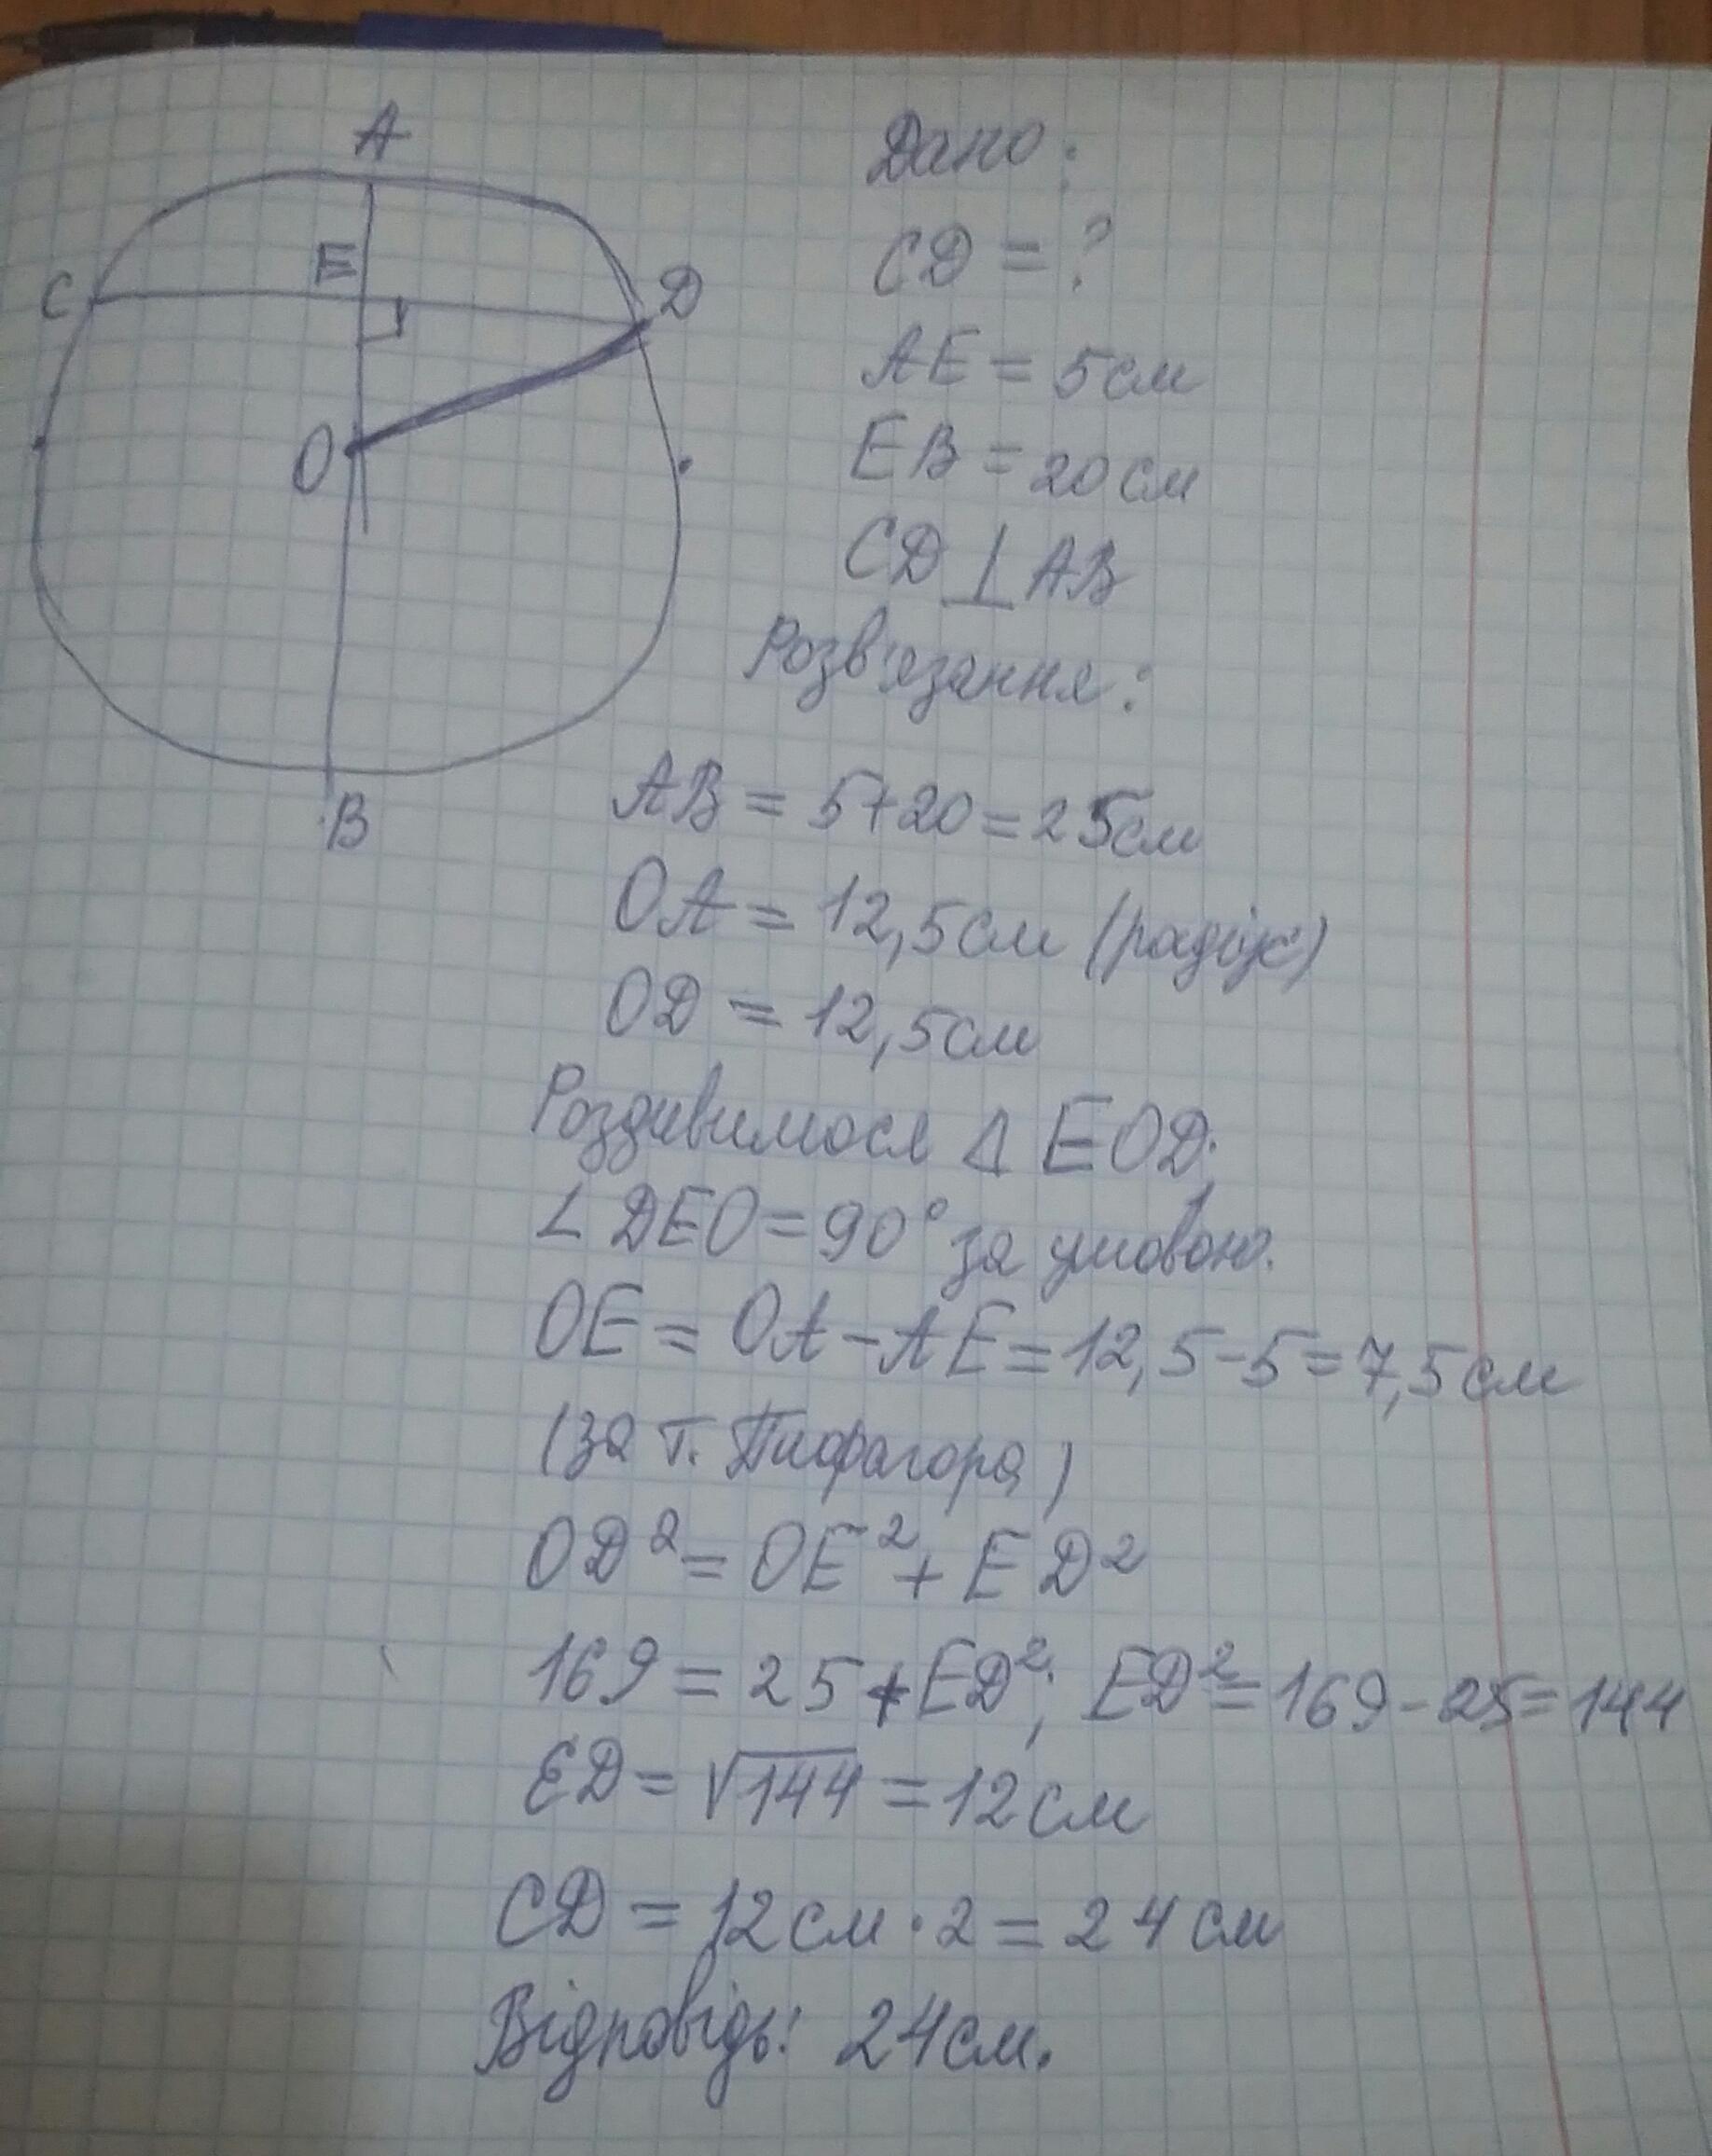 A
E
C
D
O
B
Дано:
CD = ?
AE = 5см
EB = 20см
CD ⊥ AB
Розв'язання:
AB = 5+20 = 25см
OA = 12,5см (радіус)
OD = 12,5см
Роздивимося Δ EOD;
∠ DEO = 90° за умовою.
OE = OA - AE = 12,5 - 5 = 7,5см
(за т. Піфагора)
OD² = OE² + ED²
169 = 25 + ED²; ED² = 169 - 25 = 144
ED = √144 = 12см
CD = 12см · 2 = 24см
Відповідь: 24см.